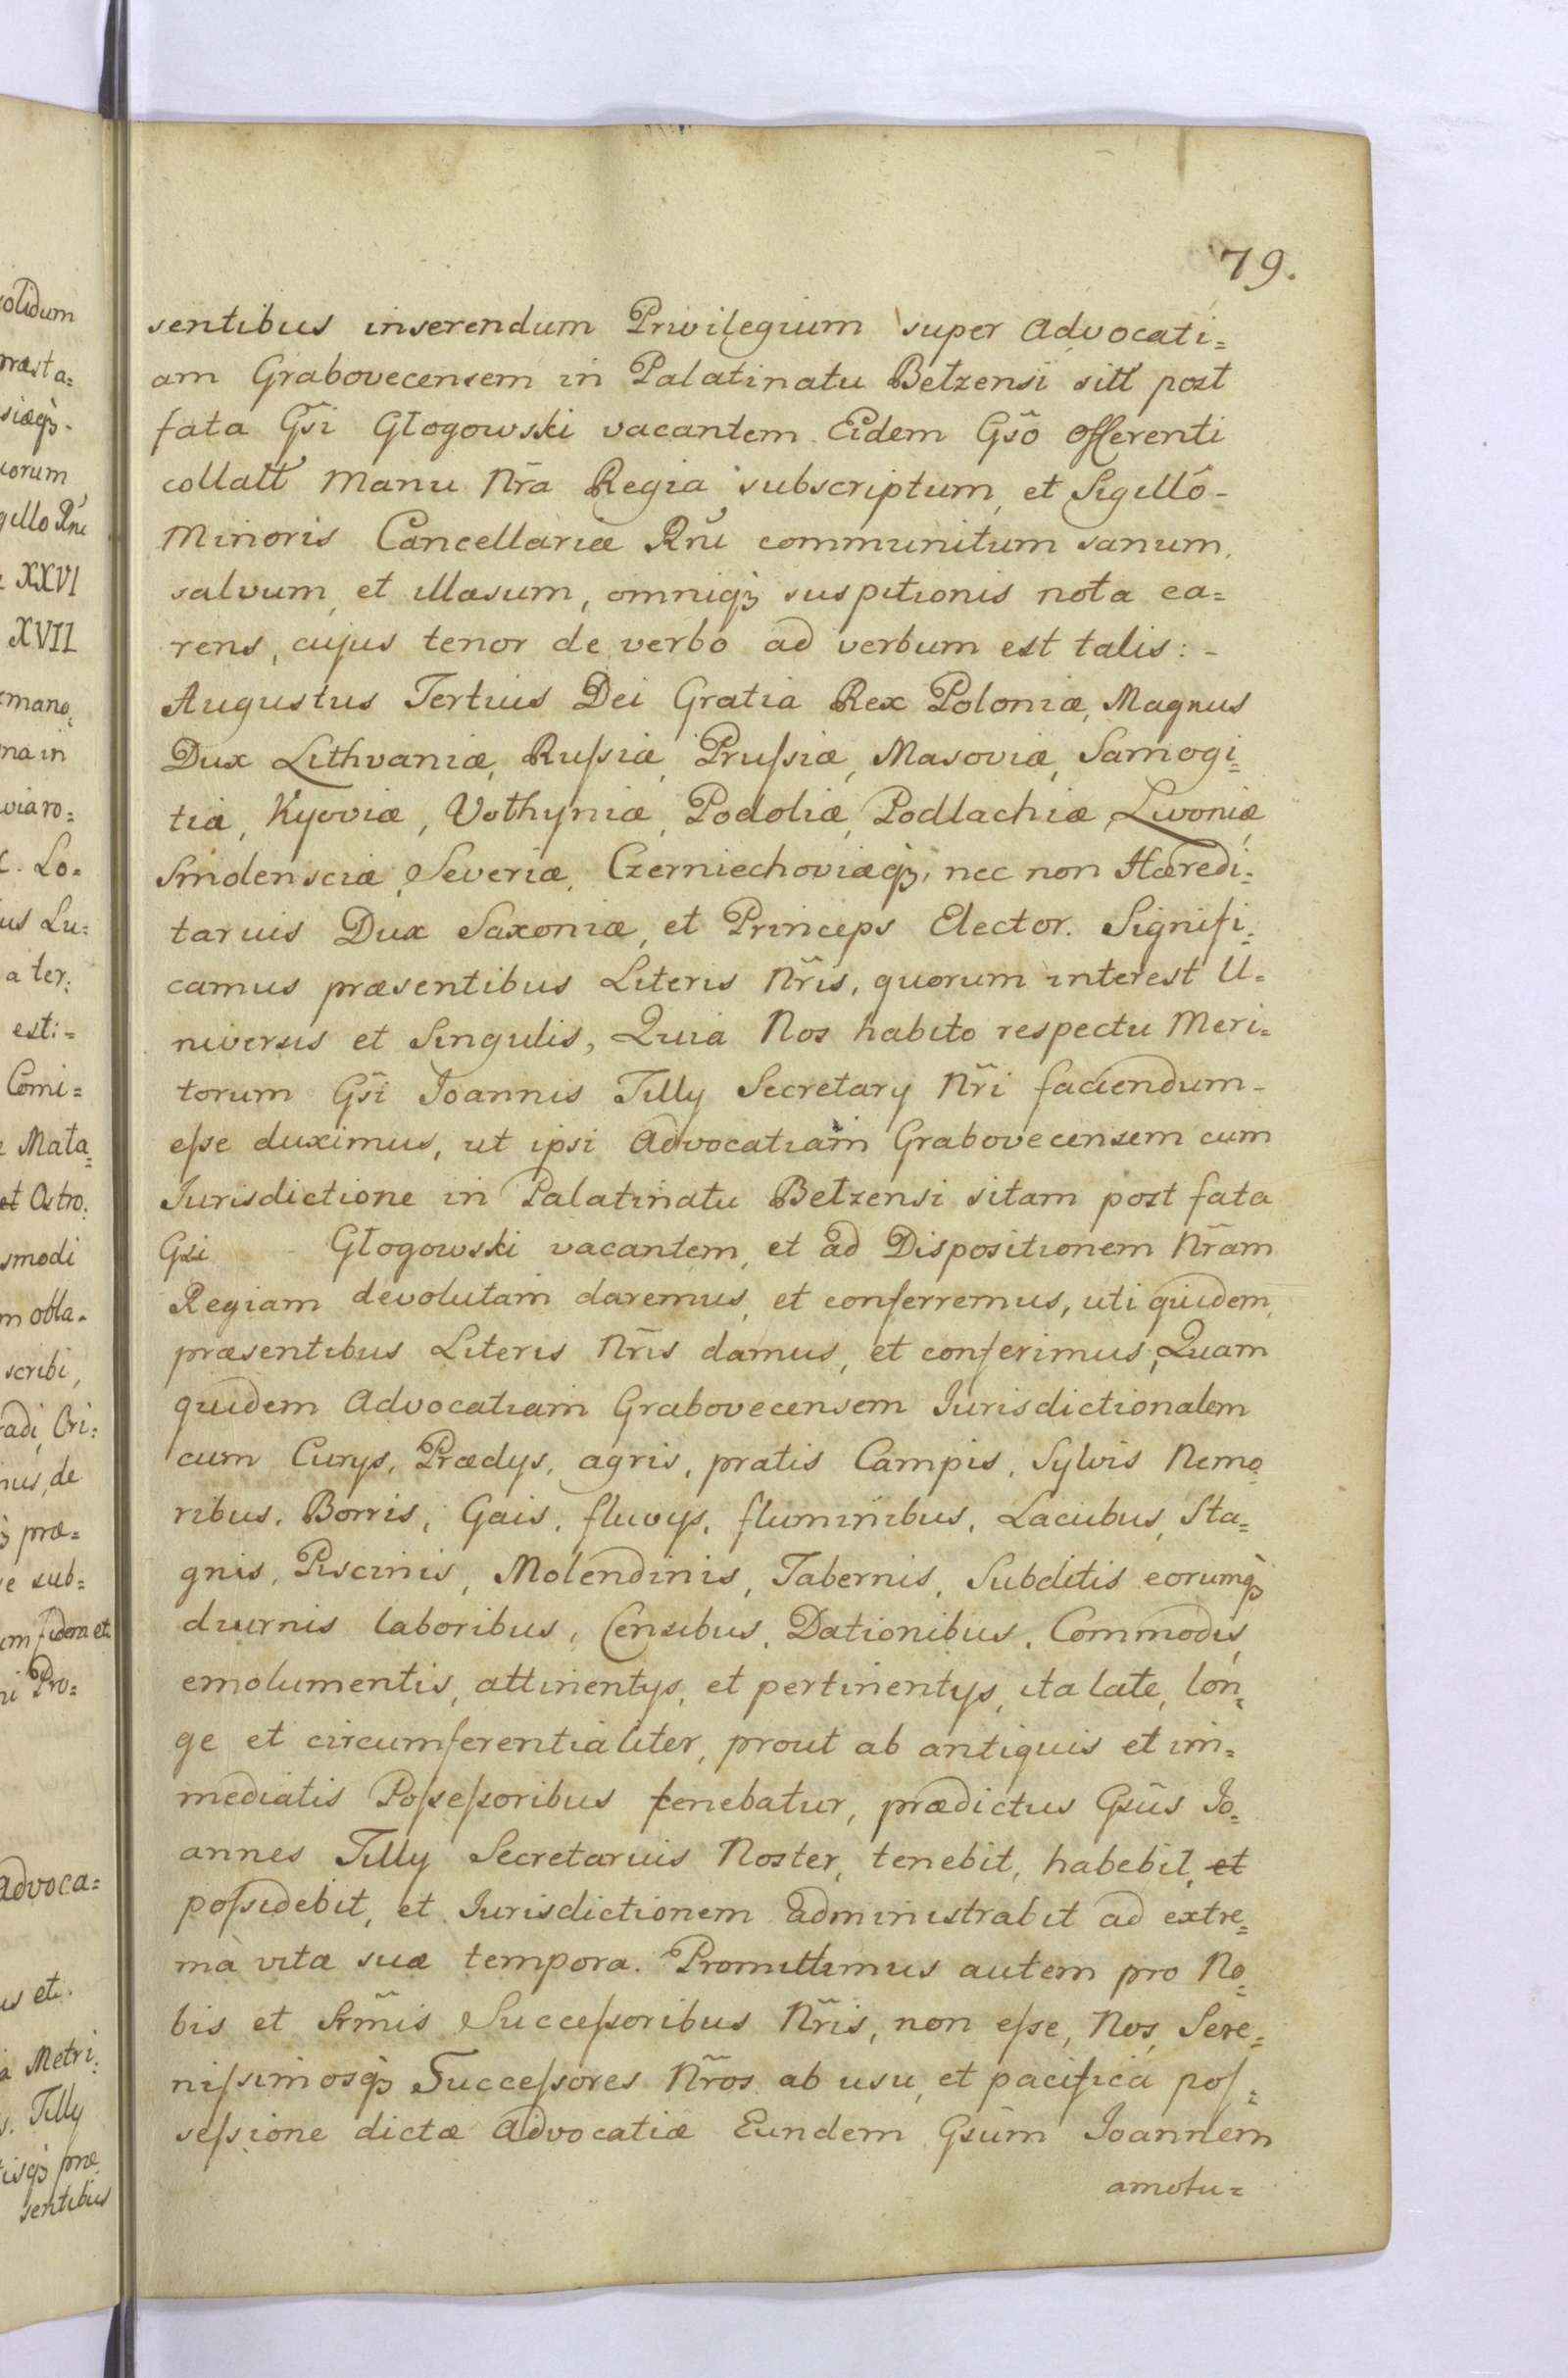 79.
sentibus inserendum Privilegium super Advocati=
am Grabovecensem in Palatinatu Bełzensi sitt post
fata Gsi Głogowski vacantem Eidem Gso Offerenti
collatt Manu Nra Regia subscriptum, et Sigillo-
Minoris Cancellariæ Rni communitum sanum,
salvum, et illæsum, omniqȝ suspitionis nota ca=
rens, cujus tenor de verbo ad verbum est talis: -
Augustus Tertius Dei Gratia Rex Poloniæ, Magnus
Dux Lithvaniæ, Ruſsiæ, Pruſsiæ, Masoviæ, Samogi=
tiæ, Kyoviæ, Vołhyniæ, Podoliæ, Podlachiæ, Livoniæ,
Smolensciæ, Severiæ, Czerniechoviæqȝ, nec non Hæredi=
tarius Dux Saxoniæ, et Princeps Elector. Signifi=
camus præsentibus Literis Nris, quorum interest U=
niversis et Singulis, Quia Nos habito respectu Meri=
torum Gsi Joannis Tilly Secretarij Nri faciendum-
eſse duximus, ut ipsi Advocatiam Grabovecensem cum
Jurisdictione in Palatinatu Bełzensi sitam post fata
Gsi Głogowski vacantem, et ad Dispositionem Nram
Regiam devolutam daremus, et conferremus, uti quidem,
præsentibus Literis Nris damus, et conferimus, Quam
quidem Advocatiam Grabovecensem Jurisdictionalem
cum Curijs, Prædijs, agris, pratis Campis, Sylvis Nemo=
ribus, Borris, Gais, fluvijs, fluminibus, Lacubus, Sta=
gnis, Piscinis, Molendinis, Tabernis, Subditis eorumqȝ
diurnis laboribus, Censibus, Dationibus, Commodis,
emolumentis, attinentijs, et pertinentijs, ita late, lon=
ge et circumferentialiter, prout ab antiquis et im=
mediatis Poſseſsoribus tenebatur, prædictus Gsus Jo=
annes Tilly Secretarius Noster, tenebit, habebit, et
poſsidebit, et Jurisdictionem administrabit ad extre=
ma vitæ suæ tempora. Promittimus autem pro No=
bis et Srmis Succeſsoribus Nris, non eſse, Nos, Sere=
niſsimosqȝ Succeſsores Nros ab usu, et pacifica poſ=
seſsione dictæ Advocatiæ Eundem Gsum Joannem
amotu=